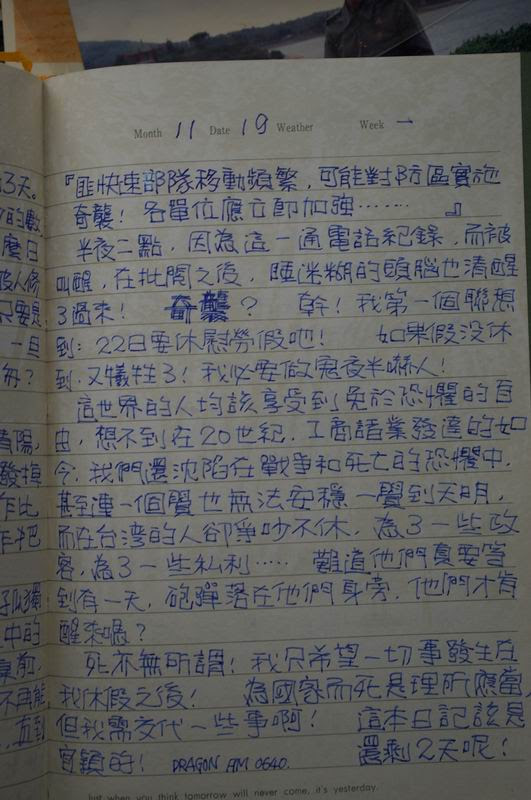 Month 11 Date 19 Weather Week 一
『匪快速部隊移動頻繁,可能對防區實施
奇襲!各單位應立即加強……… 』
半夜二點,因為這一通電話紀錄,而被
叫醒,在批閱之後,睡迷糊的頭腦也清醒
了過來! 奇襲? 幹!我第一個聯想
到:22日要休慰勞假吧! 如果假没休
到,又犧牲了!我必要做鬼夜半嚇人!
這世界的人均該享受到免於恐懼的自
由,想不到在20世紀,工商諸業發達的如
今,我們還沈陷在戰爭和死亡的恐懼中,
甚至連一個覺也無法安穩一覺到天明,
而在台湾的人卻爭吵不休,為了一些政
客,為了一些私利…… 難道他們真要等
到有一天,砲彈落在他們身旁,他們才肯
醒來嗎?
死亦無所謂!我只希望一切事發生在
我休假之後! 為國家而死是理所應當
但我需交代一些事啊! 這本日記該是
官鎖的! DRAGON AM 0640. 還剩2天呢!
Just when you think tomorrow will never come, it's yesterday.
3天。
的數
麼日
被人修
只要是
一旦
毋?
青陽,
發掉
乍比
乍把
子孤獨
中的
不再能
直到